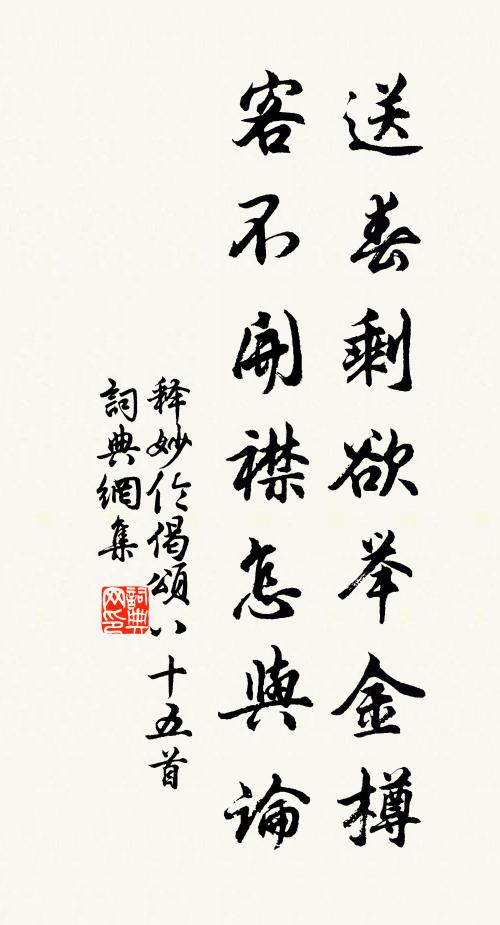 送春剩欲举金樽
客不開襟怎與論
释妙伦偈頌八十五首
詞典網集
詞典网印